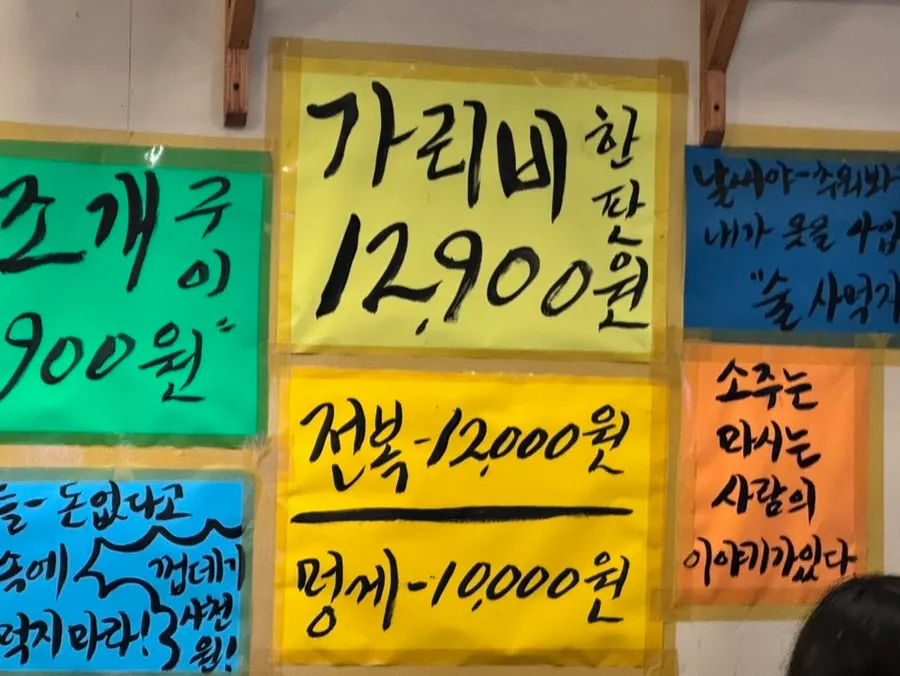 조개구이
900원"
가리비 한판
12,900원
전복-12,000원
멍게-10,000원
돈없다고
속에
먹지마라!
껍데기
사천
원!
내가 옷을
"술 사먹자
소주는
마시는
사람의
이야기가있다